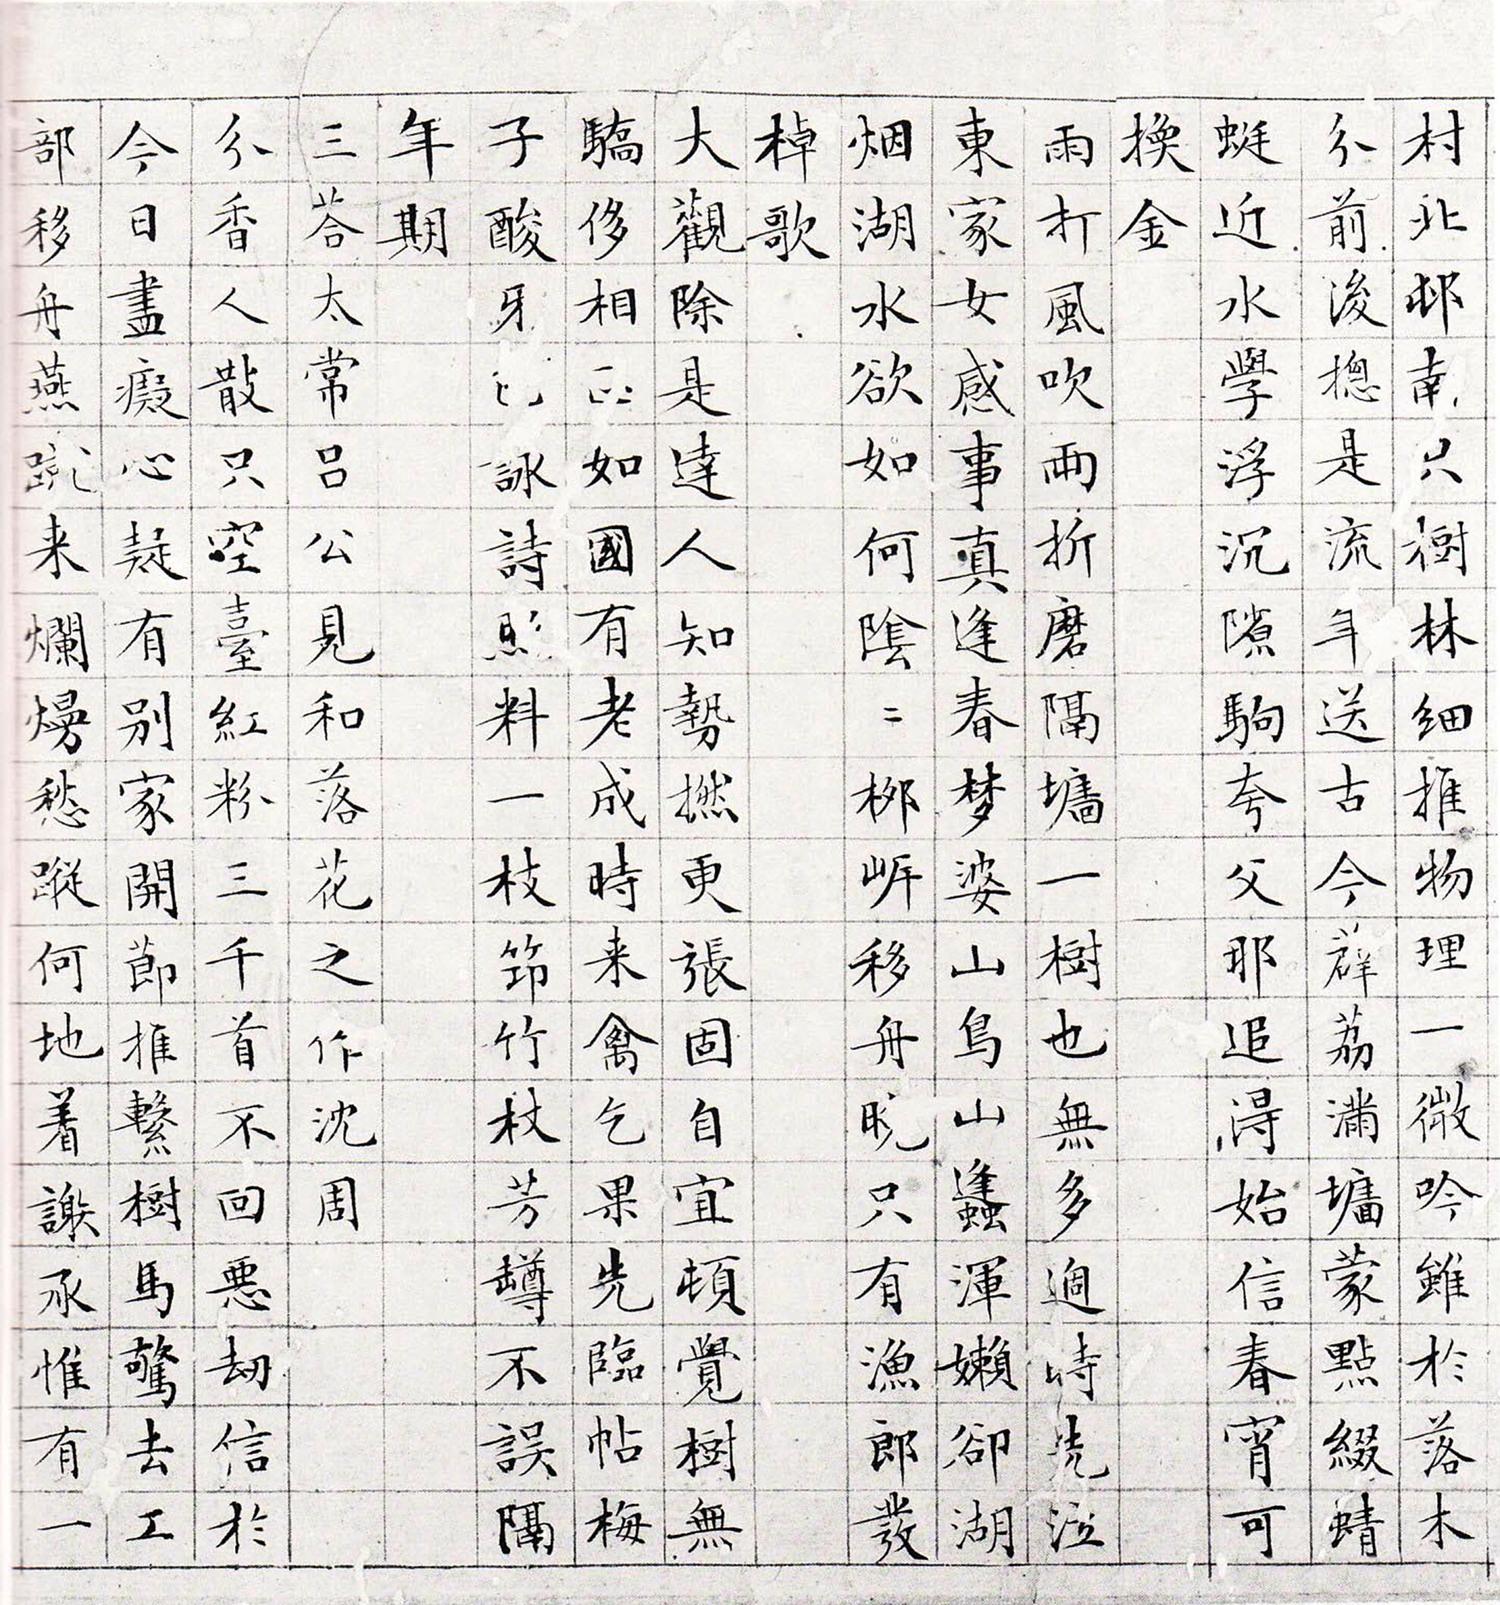 村北邨南只樹林細推物理一微吟雖於落木
分前後摠是流年送古今薜荔滿墻蒙點綴蜻
蜓近水學浮沉隙駒夸父那追得始信春宵可
換金
雨打風吹兩折磨隔墻一樹也無多適時先泣
東家女感事真逢春梦婆山鳥山蠭渾嬾卻湖
烟湖水欲如何陰〻桺岍移舟晚只有漁郎發
棹歌
大觀除是達人知勢撚更張固自宜頓覺樹無
驕侈相如國有老成時来禽乞果先臨帖梅
子酸牙詠詩照料一枝筇竹杖芳罇不誤隔
年期
三荅太常吕公見和落花之作沈周
分香人散只空臺紅粉三千首不回惡劫信於
今日盡癡心疑有别家開節推繫樹馬驚去工
部移舟燕蹴来爛熳愁蹤何地着謝承惟有一